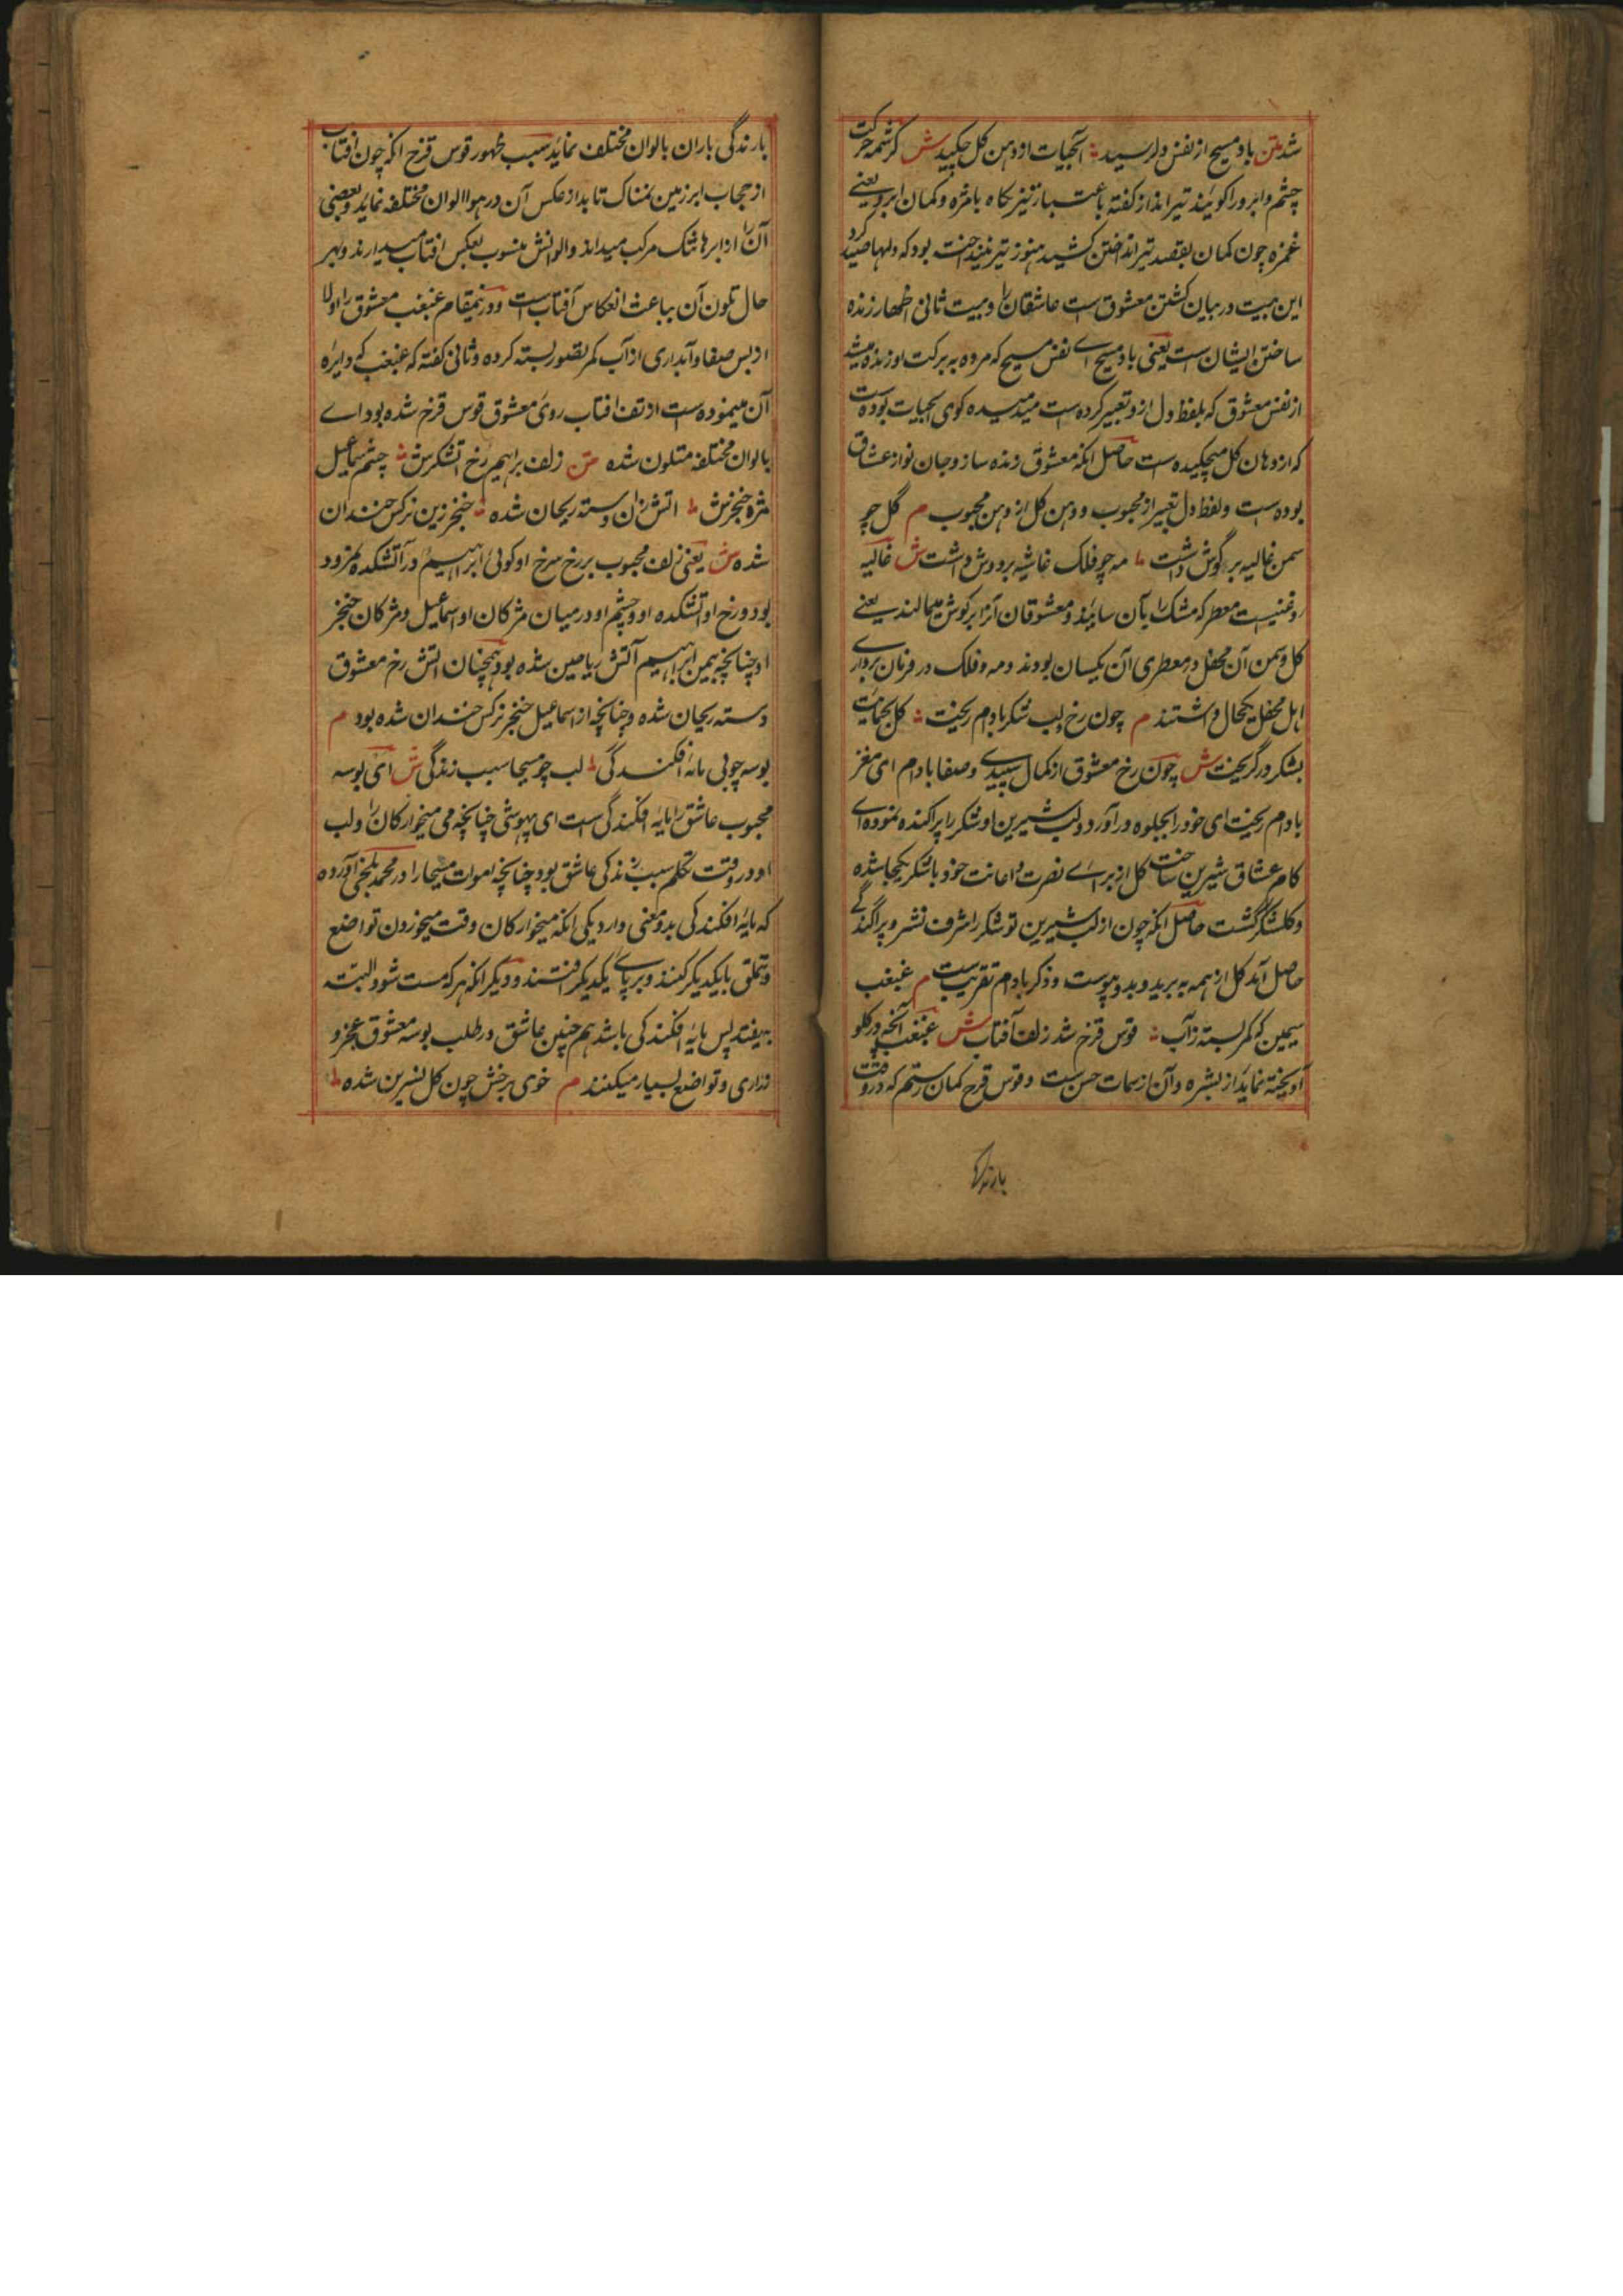 شد متن باد مسیح از نفس دل رسید آبحیات از دهن کل چکید ش کرشمه حرکت
چشم و ابرو را کویند تیرانداز کفته باعتبار تیز نکاه با مژه و کمان ابرو یعنے
غمزه چون کمان بقصد تیر انداختن کشید هنوز تیر نینداخت بود که دلها صید کرد
این بیت در بیان کشتن معشوق است عاشقان را و بیت ثانی اظهار زنده
ساختن ایشان است یعنی باد مسیح اے نفس مسیح که مرده به برکت او زنده میشد
از نفس معشوق که بلفظ دل ازو تعبیر کرده است میدمیده کوی آبحیات بوده است
که از دهان کل میچکیده است حاصل انکه معشوق زنده ساز و جان نواز عشاق
بوده است و لفظ دل تعبیر از محبوب و دهن کل از دهن محبوب م گل چو
سمن غالیه بر گوش داشت مه چو فلک غاشیه بر دوش داشت ش غالیه
روغنیست معطر که مشک را بآن سایند و معشوقان آنرا بر کوش میمالند یعنے
کل و سمن آن محفل در معطری آن یکسان بودند و مه و فلک در فرمان بردارے
اہل محفل یکحال داشتند م چون رخ و لب شکر بادام ریخت کل بحمایت
بشکر در گریخت ش چون رخ معشوق از کمال سپیدے و صفا بادام ای مغز
بادام ریخت ای خود را بجلوه در آورد و لب شیرین او شکر را پراکنده نموده اے
کام عشاق شیرین ساخت کل از براے نصرت و اعانت خود با شکر یکجا شده
و کلشکر گشت حاصل انکه چون از لب شیرین تو شکر را شرف نشر و پراگندگے
حاصل آمد کل از همه به برید و بدو پیوست و ذکر بادام تقریبست م غبغب
سیمین که کمر بسته ز آب قوس قزح شد ز تف آفتاب ش غبغب آنچه در کلو
آویخته نماید از بشره و آن از سمات حسن ست و قوس قزح کمان رستم که در وقت
بارندگی
بارندگی باران بالوان مختلف نماید سبب ظهور قوس قزح انکه چون افتاب
از حجاب ابر زمین نمناک تابد از عکس آن در هوا الوان مختلفه نماید و بعضی
آن را از ابرهاتنک مرکب میدانند و الوانش منسوب بعکس افتاب میدارند و بهر
حال تلون آن بباعث انعکاس آفتاب است و درینمقام غبغب معشوق را اولا
از بس صفا و آبداری از آب کمر تصور بسته کرده و ثانی کفته که غبغب کے دایره
آن مینموده ست از تف افتاب روی معشوق قوس قزح شده بود اے
بالوان مختلفه متلون شده متن زلف براهیم رخ اتشکرش چشم سماعیل
مژه خنجرش اتش ازان دسته ریحان شده خنجر زین نرکس خندان
شده ش یعنی زلف محبوب بر رخ سرخ او کوئی ابراہیم در آتشکده نمرود
بود و رخ او اتشکده او و چشم او در میان مژکان او اسماعیل و مژکان خنجر
او چنانچه بیمن ابراہیم آتش ریاحین شده بود همچنان اتش رخ معشوق
دسته ریحان شده و چنانچه از اسماعیل خنجر نرکس خندان شده بود م
بوسه چو می مایه افکندگی لب چو مسیحا سبب زندگی ش ای بوسه
محبوب عاشق را مایه افکندگی است ای بیهوشی چنانچه می میخوارکان را و لب
او در وقت تکلم سبب زندکی عاشق بود چنانچه اموات مسیحا را در محمد بلخی آورده
که مایه افکندکی بدو معنی وارد یکی انکه میخوارکان وقت میخوردن تواضع
و تملق با یکدیکر کنند و بر پاے یکدیکر افتند و دیکر انکه هر که مست شود البته
بیفتد پس مایه افکندکی باشد هم چنین عاشق در طلب بوسه معشوق عجز و
زاری و تواضع بسیار میکنند م خوی برخش چون کل نسرین شده